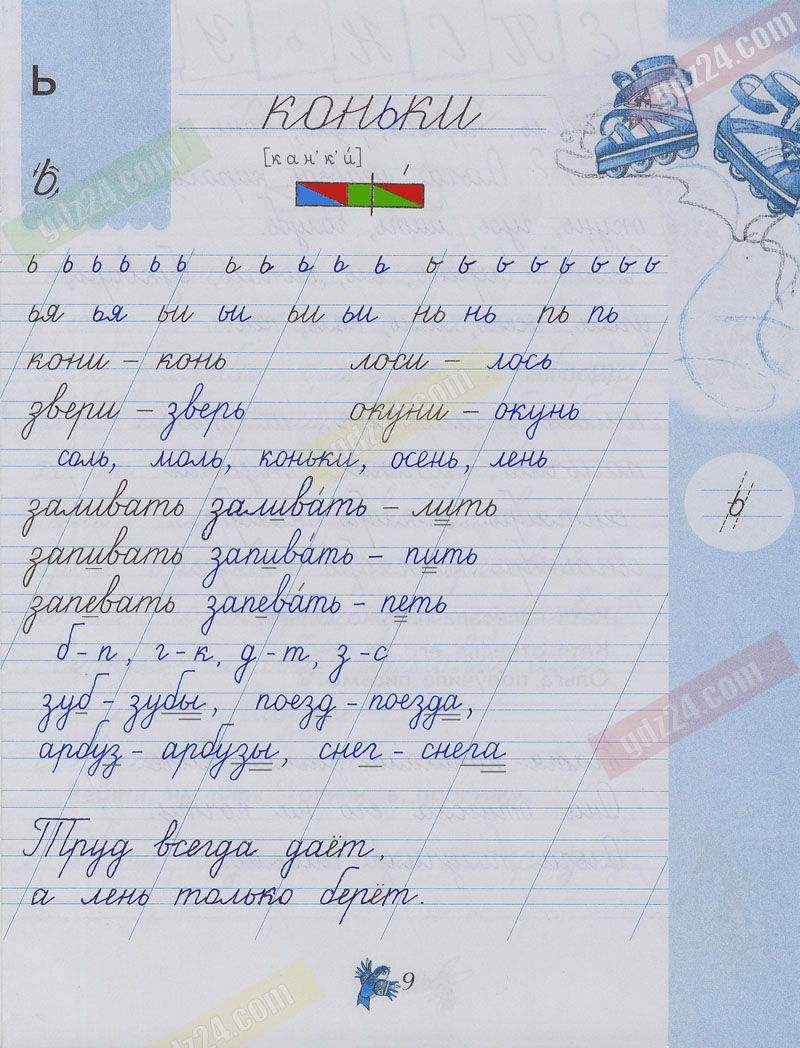 ь
коньки
[кан'к'и́]
ь
ь ь ь ь ь ь ь ь ь ь ь ь ь ь ь ь ь ь ь ь
ья ья ьи ьи ьи ьи нь нь пь пь
кони – конь лоси – лось
звери – зверь окуни – окунь
соль, моль, коньки, осень, лень
ь
заливать залива́ть – лить
запивать запива́ть – пить
запевать запева́ть – петь
б-п, г-к, д-т, з-с
зуб – зубы, поезд – поезда,
арбуз – арбузы, снег – снега
Труд всегда даёт,
а лень только берёт.
9
gdz24.com
gdz24.com
gdz24.com
gdz24.com
gdz24.com